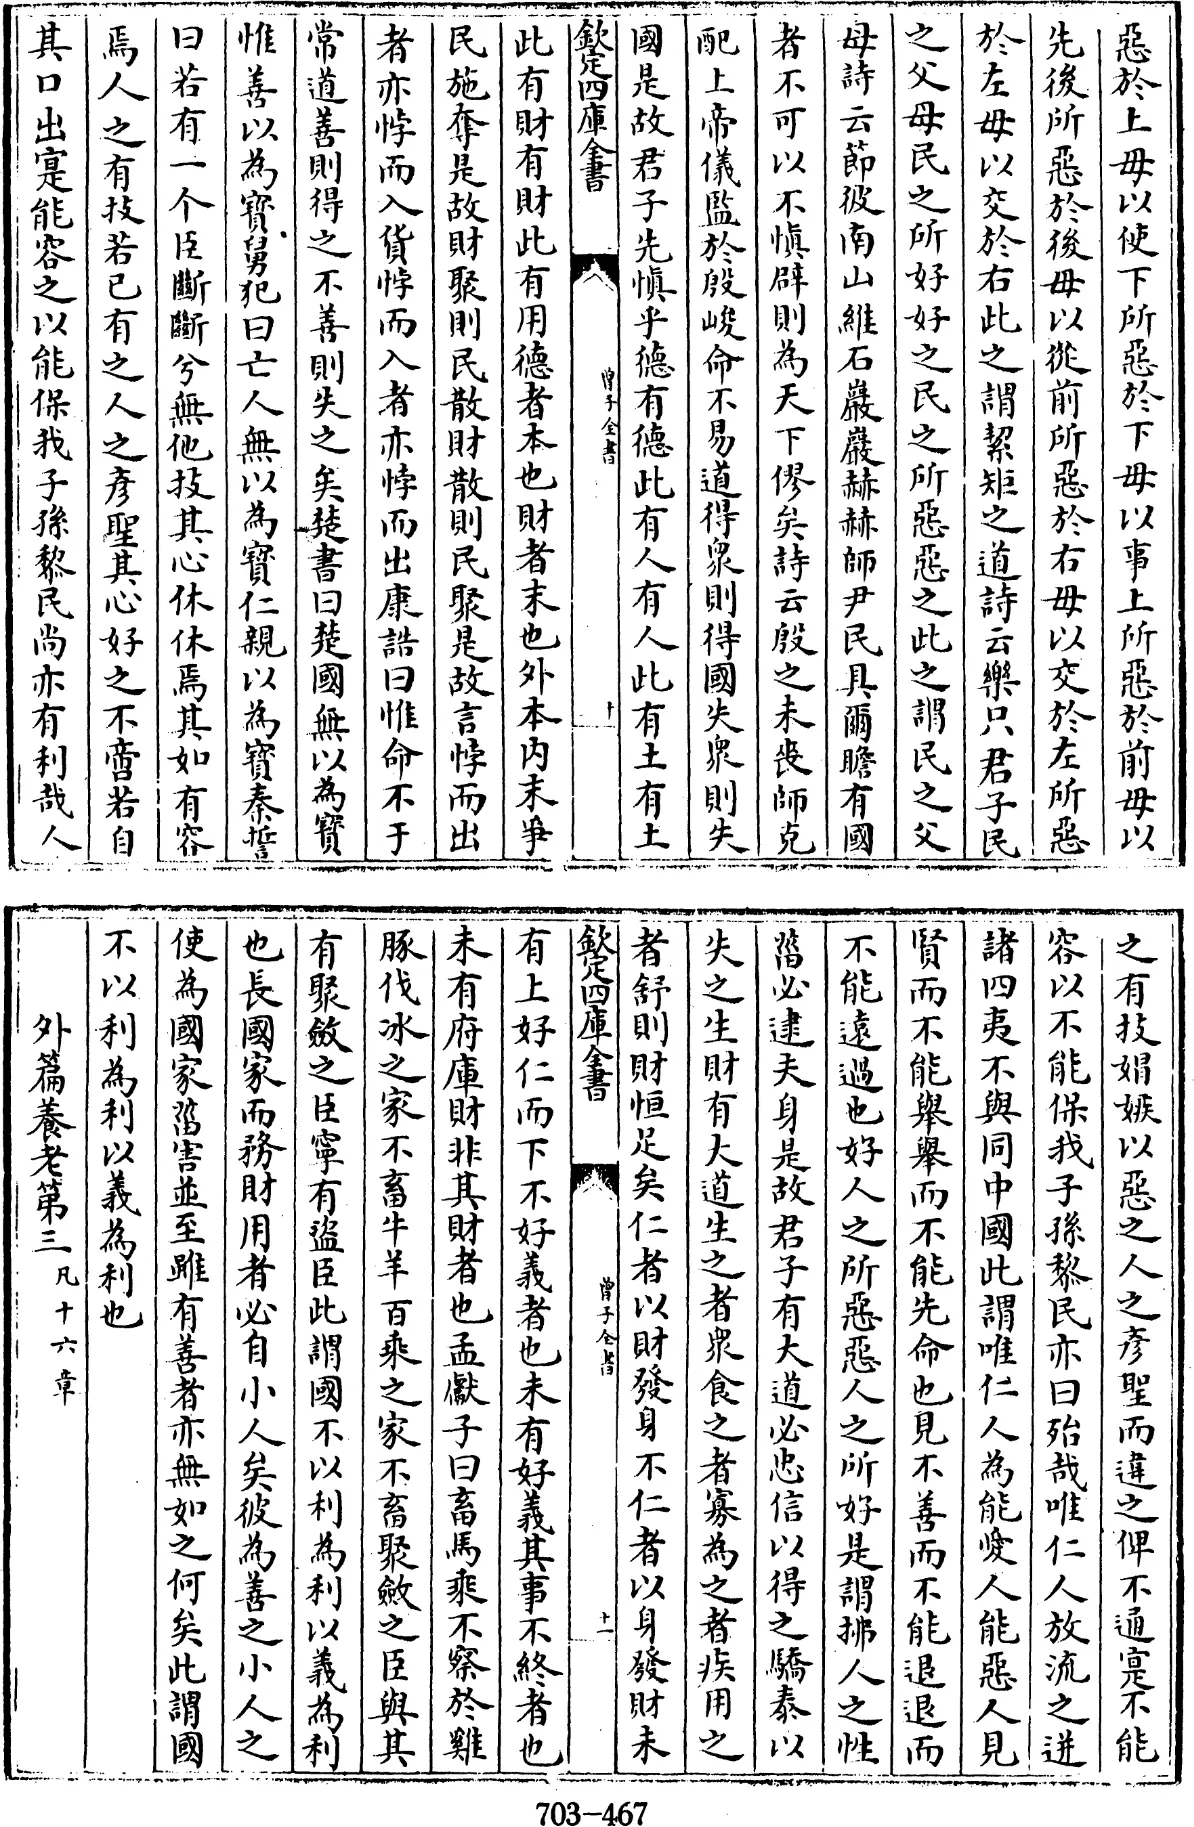 惡於上毋以使下所惡於下毋以事上所惡於前毋以
先後所惡於後毋以從前所惡於右毋以交於左所惡
於左毋以交於右此之謂絜矩之道詩云樂只君子民
之父母民之所好好之民之所惡惡之此之謂民之父
母詩云節彼南山維石巖巖赫赫師尹民具爾瞻有國
者不可以不慎辟則為天下僇矣詩云殷之未喪師克
配上帝儀監於殷峻命不易道得衆則得國失衆則失
國是故君子先慎乎德有德此有人有人此有土有土
欽定四庫全書
曾子全書
十
此有財有財此有用德者本也財者末也外本内末爭
民施奪是故財聚則民散財散則民聚是故言悖而出
者亦悖而入貨悖而入者亦悖而出康誥曰惟命不于
常道善則得之不善則失之矣楚書曰楚國無以為寶
惟善以為寶舅犯曰亡人無以為寶仁親以為寶秦誓
曰若有一个臣斷斷兮無他技其心休休焉其如有容
焉人之有技若已有之人之彥聖其心好之不啻若自
其口出寔能容之以能保我子孫黎民尚亦有利哉人
之有技媢嫉以惡之人之彥聖而違之俾不通寔不能
容以不能保我子孫黎民亦曰殆哉唯仁人放流之迸
諸四夷不與同中國此謂唯仁人為能愛人能惡人見
賢而不能舉舉而不能先命也見不善而不能退退而
不能遠過也好人之所惡惡人之所好是謂拂人之性
菑必逮夫身是故君子有大道必忠信以得之驕泰以
失之生財有大道生之者衆食之者寡為之者疾用之
者舒則財恒足矣仁者以財發身不仁者以身發財未
欽定四庫全書
曾子全書
十一
有上好仁而下不好義者也未有好義其事不終者也
未有府庫財非其財者也孟獻子曰畜馬乘不察於雞
豚伐冰之家不畜牛羊百乘之家不畜聚斂之臣與其
有聚斂之臣寧有盜臣此謂國不以利為利以義為利
也長國家而務財用者必自小人矣彼為善之小人之
使為國家菑害並至雖有善者亦無如之何矣此謂國
不以利為利以義為利也
外篇養老第三凡十六章
703-467